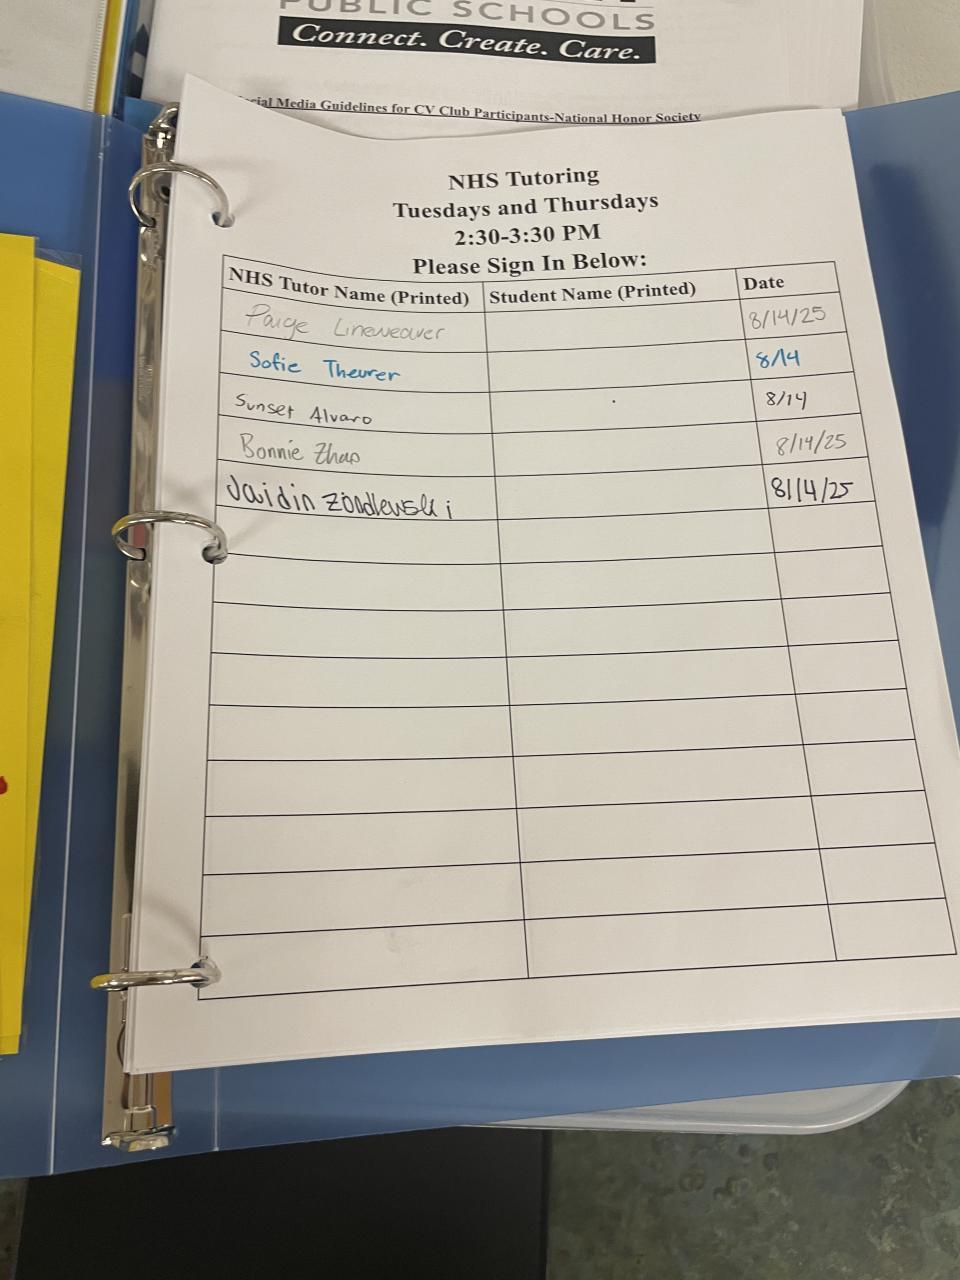 PUBLIC SCHOOLS
Connect. Create. Care.
cial Media Guidelines for CV Club Participants-National Honor Society
NHS Tutoring
Tuesdays and Thursdays
2:30-3:30 PM
Please Sign In Below:
NHS Tutor Name (Printed) Student Name (Printed) Date
Paige Lineweaver 8/14/25
Sofie Theurer 8/14
Sunset Alvaro 8/14
Bonnie Zhao 8/14/25
Jaidin 8/14/25